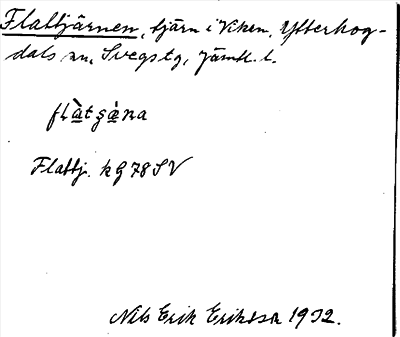 Flattjärnen, tjärn i Viken, Ytterhog-
dals sn, Svegs tg, Jämtl. l.
flàtʂæ̀na
Flattj. kg 78 SV
Nils Erik Eriksson 1932.